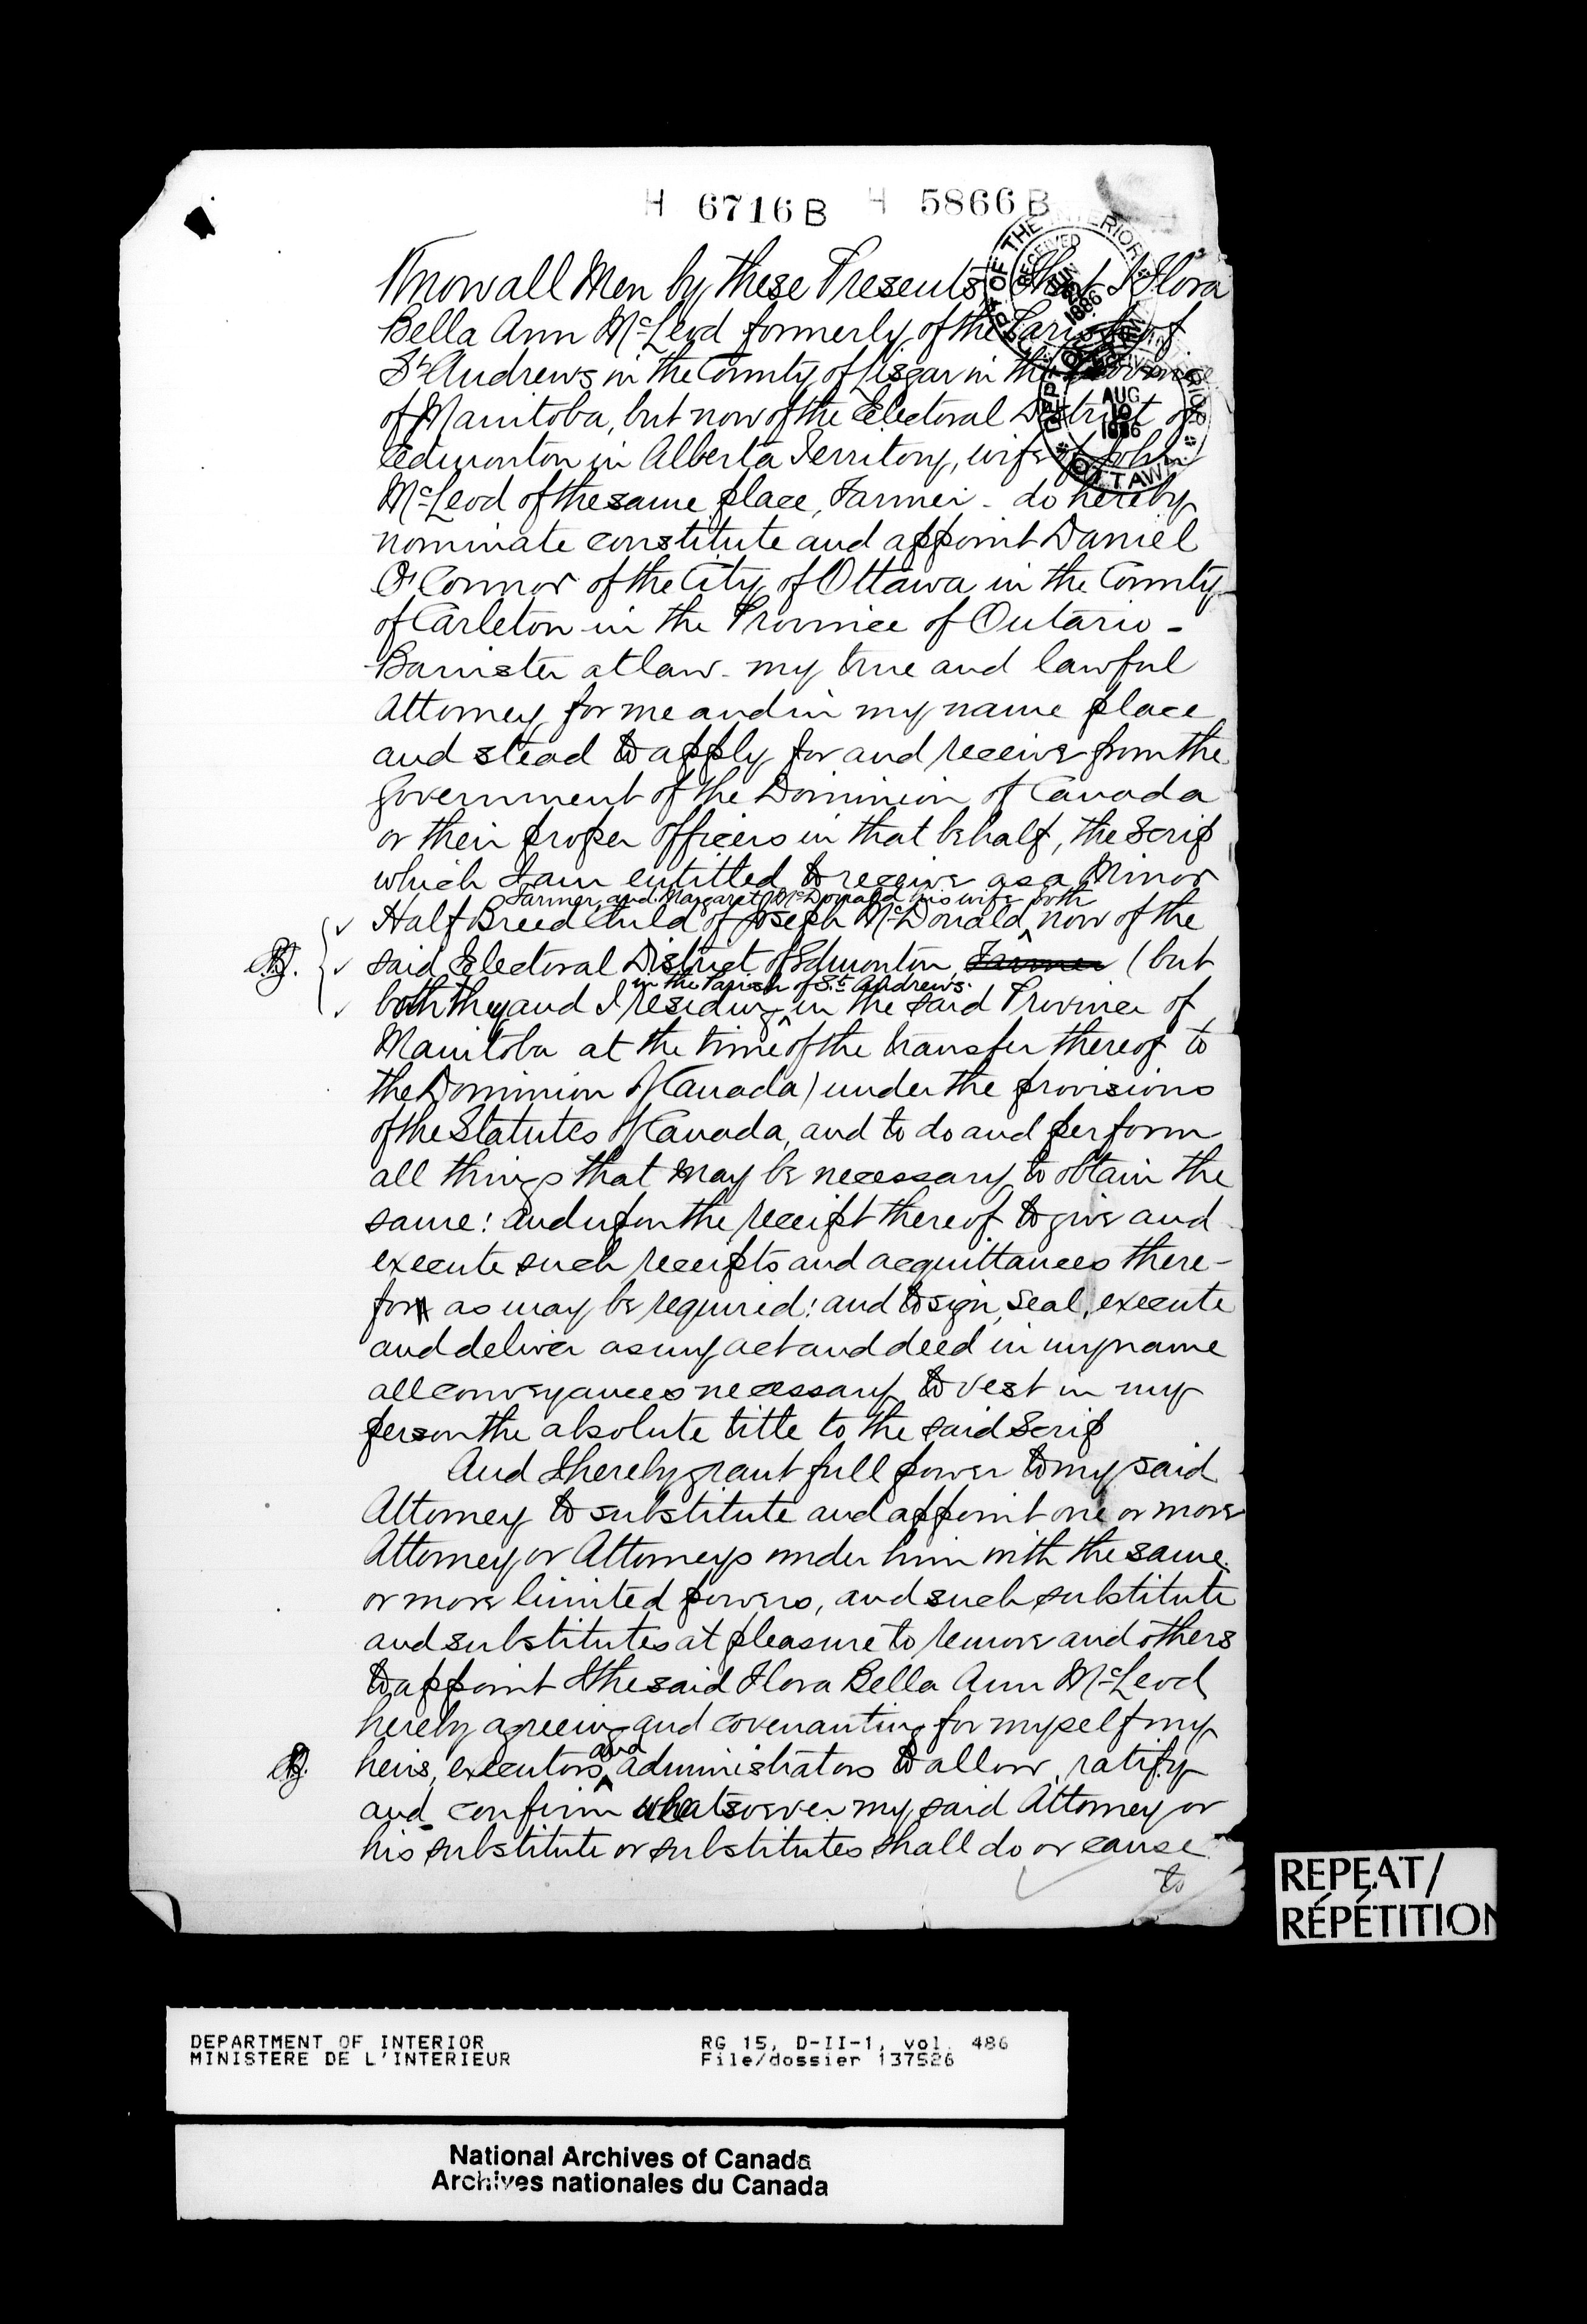 H 6716 B H 5866 B
DEPT OF THE INTERIOR
RECEIVED
1886
OTTAWA
AUG
10
1886
Know all Men by these Presents That I Flora
Bella Ann McLeod formerly of the Parish of
St. Andrews in the County of Lisgar in the Province
of Manitoba, but now of the Electoral District of
Edmonton in Alberta Territory, wife of John
McLeod of the same place, Farmer - do hereby
nominate constitute and appoint Daniel
O'Connor of the City of Ottawa in the County
of Carleton in the Province of Ontario -
Barrister at law - my true and lawful
Attorney for me and in my name place
and stead to apply for and receive from the
Government of the Dominion of Canada
or their proper officers in that behalf, the Scrip
which I am entitled to receive as a Minor
Farmer and Margaret McDonald his wife both
Half Breed Child of Joseph McDonald ^ now of the
said Electoral District of Edmonton, Farmer (but
in the Parish of St. Andrews.
both they and I residing ^ in the said Province of
Manitoba at the time of the transfer thereof to
the Dominion of Canada) under the provisions
of the Statutes of Canada, and to do and perform
all things that may be necessary to obtain the
same: and upon the receipt thereof to give and
execute such receipts and acquittances there-
for as may be required: and to sign, seal, execute
and deliver as my act and deed in my name
all conveyances necessary to vest in my
person the absolute title to the said Scrip
And I hereby grant full power to my said
Attorney to substitute and appoint one or more
Attorney or Attorneys under him with the same
or more limited powers, and such substitute
and substitutes at pleasure to remove and others
to appoint I the said Flora Bella Ann McLeod
hereby agreeing and covenanting for myself my
and
heirs, executors ^ administrators to allow, ratify
and confirm whatsoever my said Attorney or
his substitute or substitutes shall do or cause
to
REPEAT/
RÉPÉTITION
DEPARTMENT OF INTERIOR RG 15, D-II-1, vol. 486
MINISTERE DE L'INTERIEUR File/dossier 137526
National Archives of Canada
Archives nationales du Canada